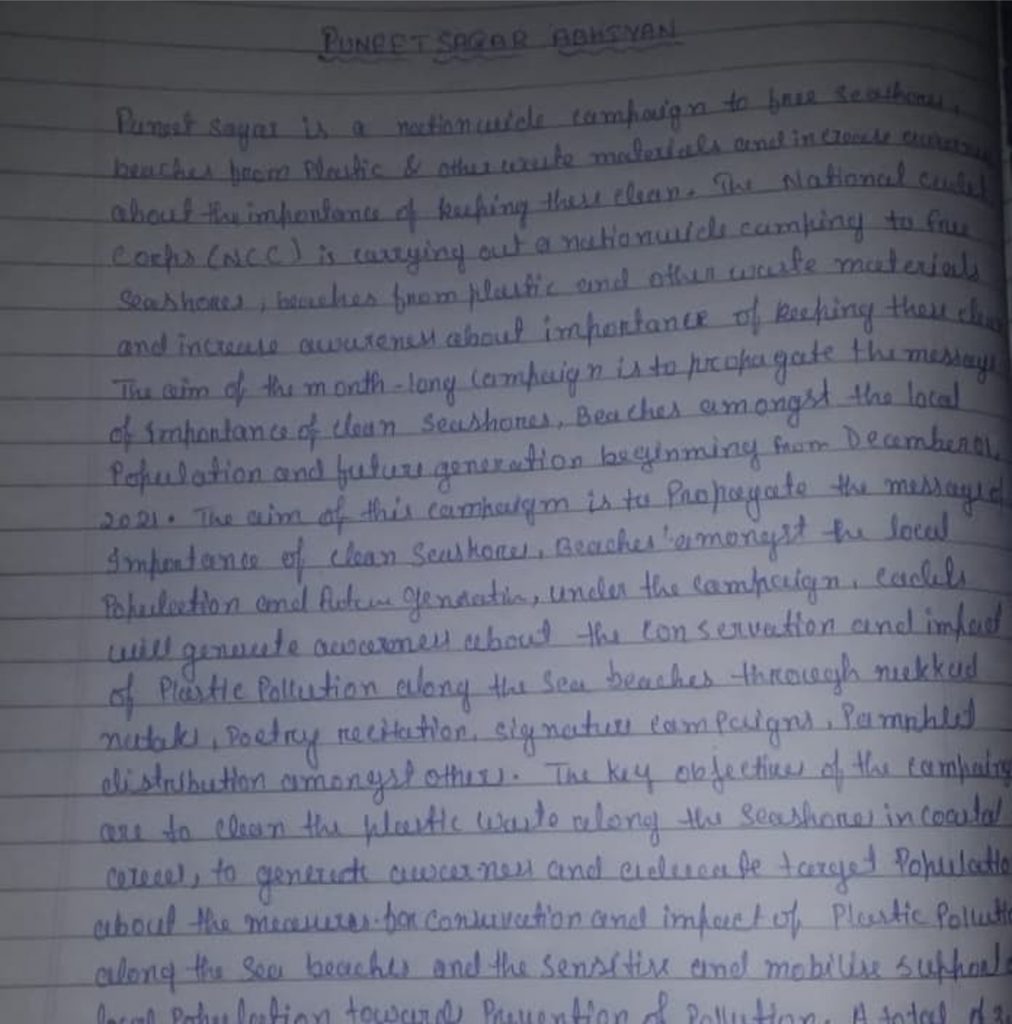 PUNEET SAGAR ABHIYAN
Puneet sagar is a nationwide campaign to free seashores,
beaches from Plastic & other waste materials and increase
about the importance of keeping these clean. The National Cadet
Corps (NCC) is carrying out a nationwide camping to free
Seashores, beaches from plastic and other waste materials
and increase awareness about importance of keeping these clean
The aim of the month-long campaign is to propagate the message
of Importance of clean Seashores, Beaches amongst the local
Population and future generation beginning from December 01,
2021. The aim of this campaigm is to Propagate the message of
Importance of clean Seashores, Beaches amongst the local
Population and, under the campaign, cadets
will generate awareness about the conservation and impact
of Plastic Pollution along the sea beaches through nukkad
natak, Poetry recitation, signature campaigns, Pamphlet
distribution amongst others. The key objectives of the
are to clean the plastic waste along the seashores in coastal
areas, to generate awareness and educate target
about the measures for conservation and impact of Plastic
along the sea beaches and the sensitise and mobilise support
local Population towards Prevention of Pollution. A total of